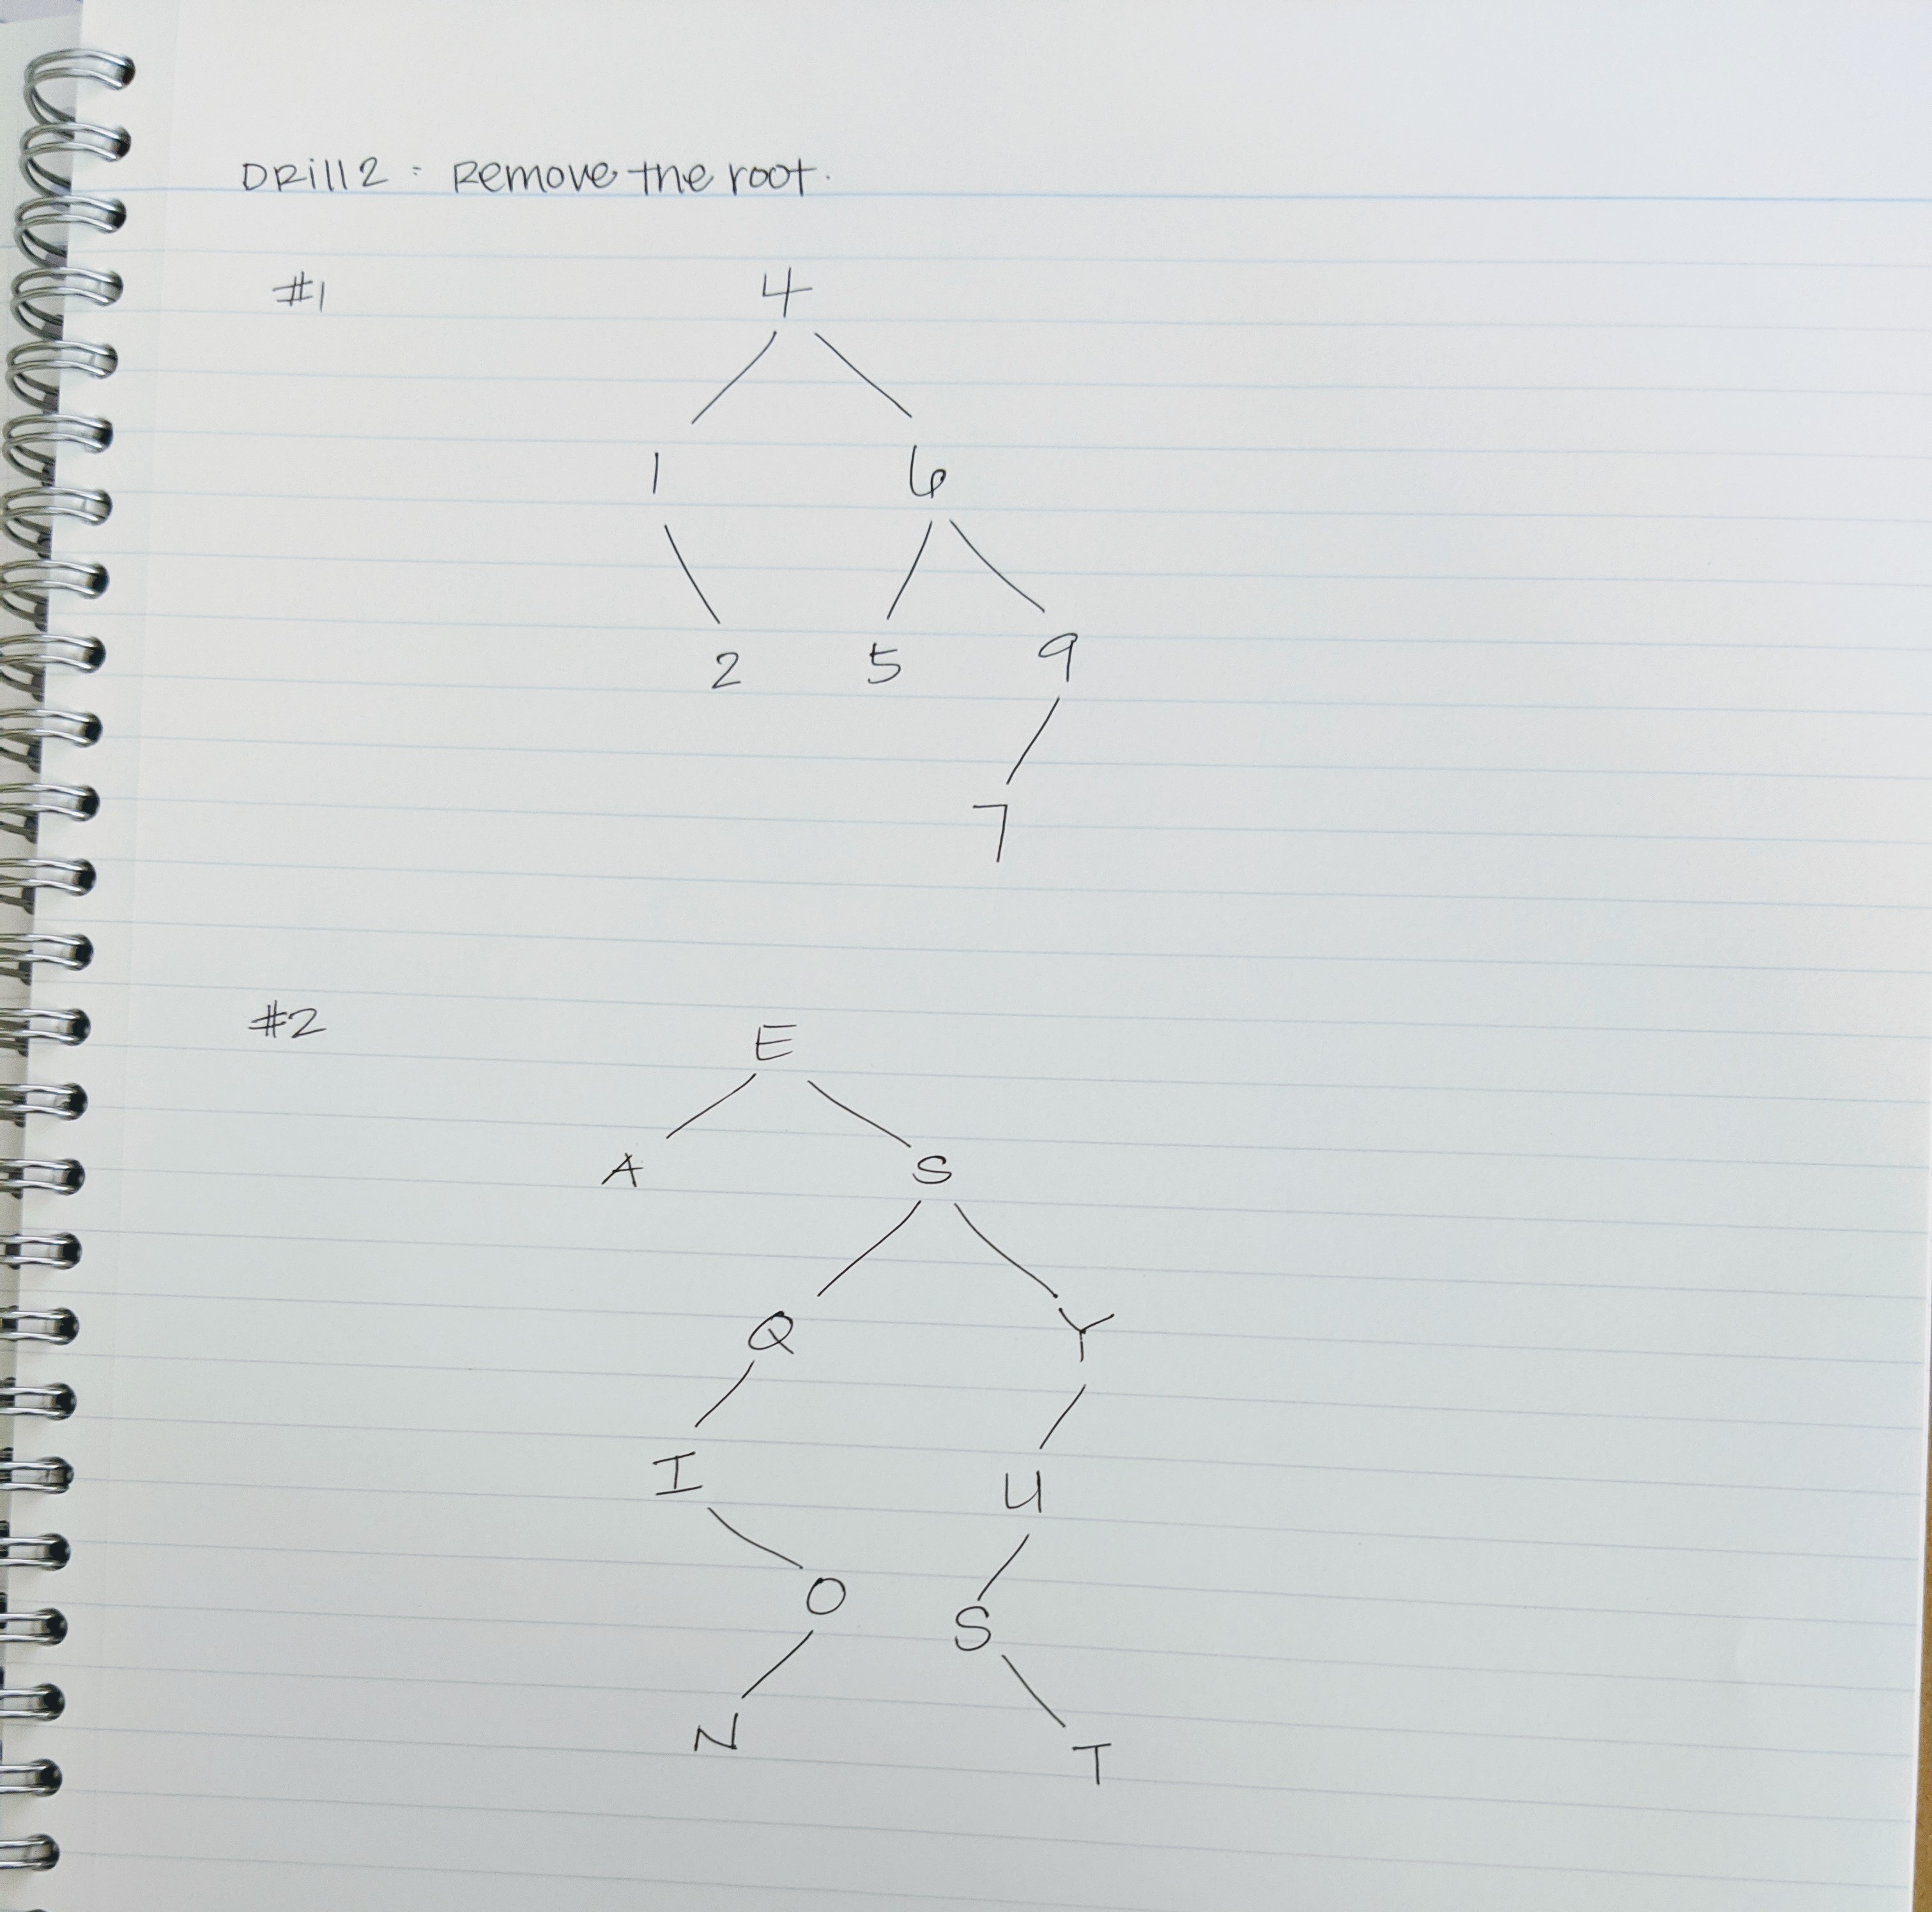 DRill 2 : Remove the root.
#1
4
1 6
2 5 9
7
#2
E
A S
Q Y
I U
O S
N T